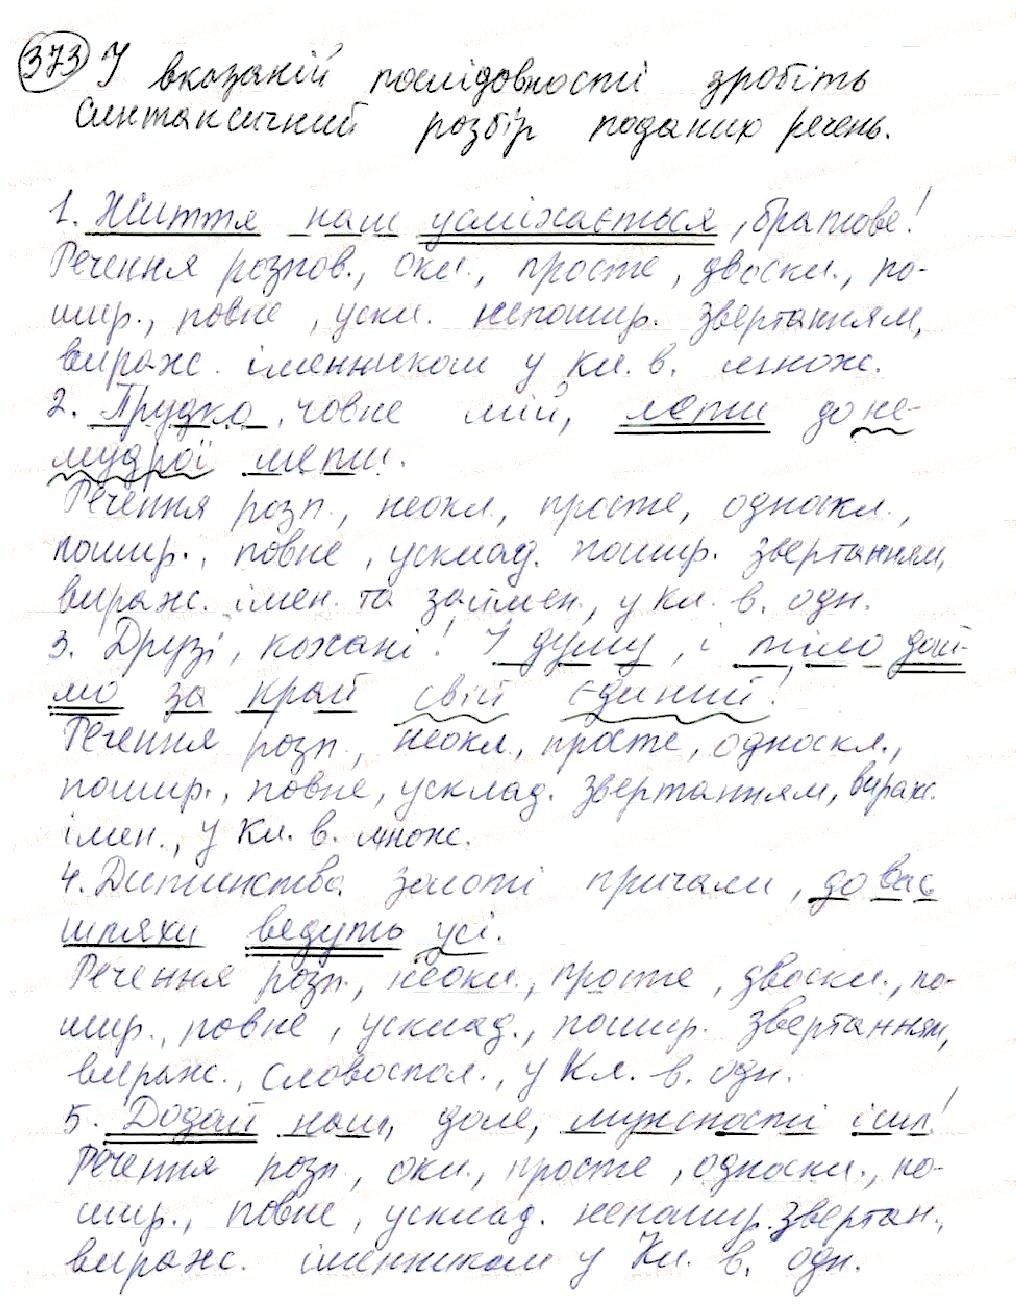 373 У вказаній послідовності зробіть
синтаксичний розбір поданих речень.
1. Життя нам усміхається, братове!
Речення розпов., окл., просте, двоскл., по-
шир., повне, ускл. непошир. звертанням,
вираж. іменником у Кл. в. множ.
2. Прудко, човне мій, лети до не-
мудрої мети.
Речення розп., неокл., просте, односкл.,
пошир., повне, усклад. пошир. звертанням,
вираж. імен. та займен., у Кл. в. одн.
3. Друзі, кохані! І думу, і тіло дай-
мо за край свій єдиний!
Речення розп., неокл., просте, односкл.,
пошир., повне, усклад. звертанням, вираж.
імен., у Кл. в. множ.
4. Дитинства золоті причали, до вас
шляхи ведуть усі.
Речення розп., неокл., просте, двоскл., по-
шир., повне, усклад., пошир. звертанням,
вираж., словоспол., у Кл. в. одн.
5. Додай нам, доле, мужності і сил!
Речення розп., окл., просте, односкл., по-
шир., повне, усклад. непошир. звертан.,
вираж. іменником у Кл. в. одн.